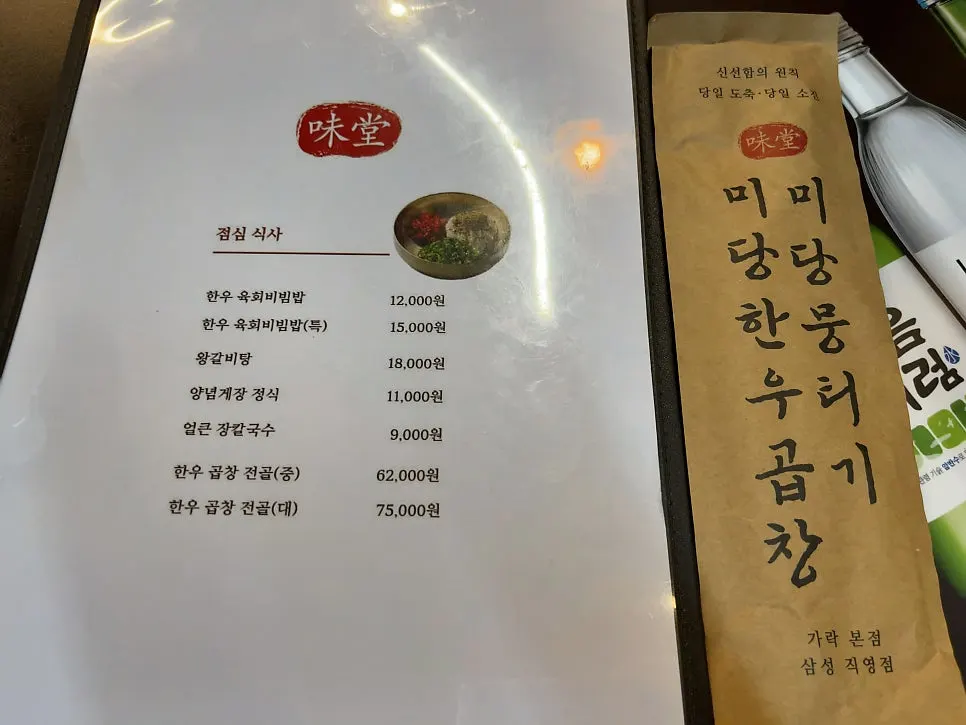 味堂
점심 식사
한우 육회비빔밥 12,000원
한우 육회비빔밥(특) 15,000원
왕갈비탕 18,000원
양념게장 정식 11,000원
얼큰 장칼국수 9,000원
한우 곱창 전골(중) 62,000원
한우 곱창 전골(대) 75,000원
신선함의 원칙
당일 도축·당일 소진
味堂
미당뭉터기
미당한우곱창
가락 본점
삼성 직영점